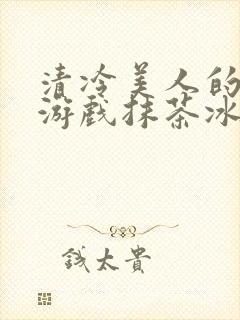 清冷美人的
游戏抹茶冰
钱太贵